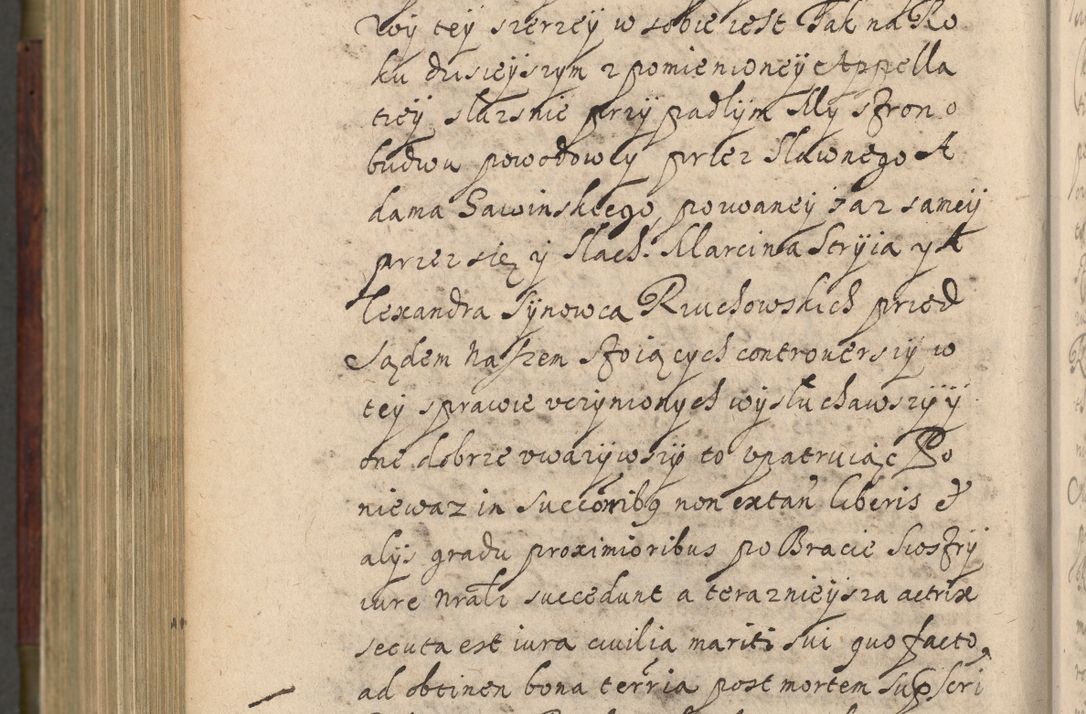 wy tey szerzey w sobie iest Tak na Ro
ku dzisieyszym z pomienioney Appella
tiey słuznie przypadłym My stron o
budwu powodowey przez Sławnego A
dama Sawinskiego, pozwaney zaz samey
przez się y Slach. Marcina Stryia y A
lexandra Synowca Rzuchowskich przed
Sądem naszem stoiących controversiy w
tey sprawie vczynionych wysłuchawszy y
one dobrze vwazywszy to vpatruiąc Po
niewaz in successoribq non extan liberis et
alijs gradu proximioribus po Bracie Siostry
iure nrali succedunt a teraznieysza actrix
secuta est iura civilia mariti sui quo facto
ad obtinen bona terria post mortem supscri